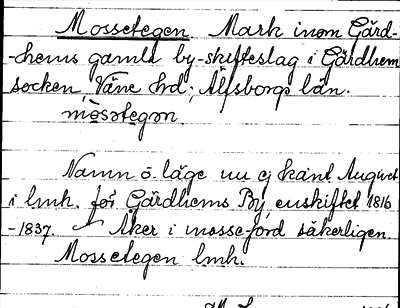 Mossetegen Mark inom Gärd-
-hems gamla by-skifteslag i Gärdhem
socken, Väne hd; Älfsborgs län.
mòsətegən.
Namn o. läge nu ej känt. Angivet
i lmh. för Gärdhems By, enskiftet 1816
-1837. Åker i mosse-jord säkerligen.
Mossetegen lmh.